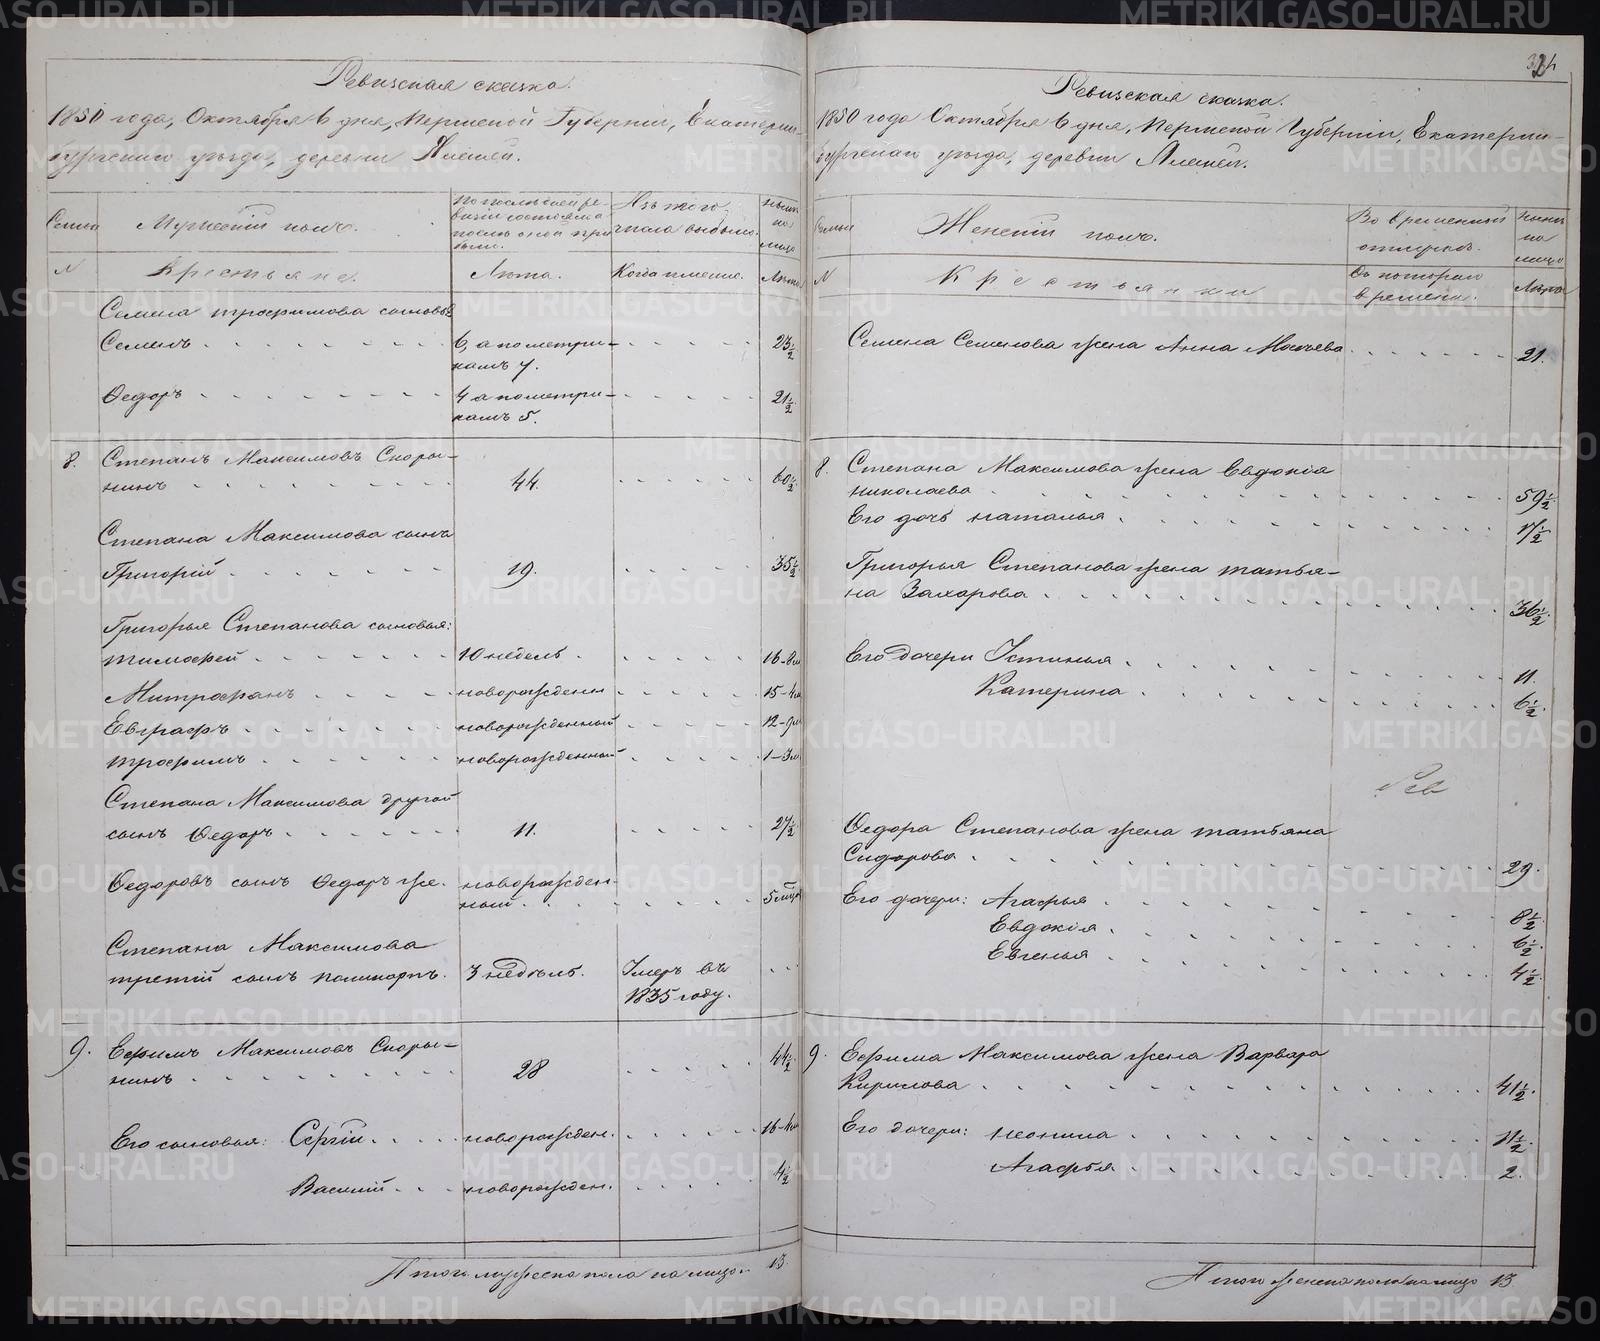 Ревизская сказка.
1850 года, Октября 6 дня, Пермской Губернии, Екатерин-
бургскаго уезда, деревни
Семьи
Мужеский полъ.
По последней ре-
визии состояло и
после оной при
были.
Изъ того
числа выбыло.
ныне
на
лицо
№
Крестьяне.
Лета.
Когда именно.
Лета
Семена Трофимова сыновья
Семенъ 6, а по метри- 23 ½
камъ 7.
Федоръ 4 а по метри- 21 ½
камъ 5.
8. Степанъ Максимовъ Скоры-
нинъ 44. 60 ½
Степана Максимова сынъ
Григорий 19. 35 ½
Григорья Степанова сыновья:
Тимофей 10 недель 16-8м
Митрофанъ новорожденн 15-4м
Евграфъ новорожденный 12-9м
Трофимъ новорожденный 1-3м
Степана Максимова другой
сынъ Федоръ 11. 27 ½
Федоровъ сынъ Федоръ же. новорожден-
ный 5 мес
Степана Максимова
третий сынъ Поликарпъ. 3 недель. Умеръ въ
1835 году.
9. Ефимъ Максимовъ Скоры-
нинъ 28 44 ½
Его сыновья: Сергий новорожден. 16-4м
Василий новорожден. 4 ½
Итого мужеска пола на лицо 13
Ревизская сказка.
1850 года Октября 6 дня, Пермской Губернии, Екатерин-
бургскаго уезда, деревни
Семьи
Женский полъ.
Во временной
отлучке.
ныне
на
лицо
№
Крестьянки
Съ котораго
времени.
Лета
Семена Семенова жена Анна 21.
8. Степана Максимова жена Евдокия
Николаева 59 ½
Его дочь Наталья 17 ½
Григорья Степанова жена Татья-
на Захарова 36 ½
Его дочери Устинья 11.
Катерина 6 ½.
Федора Степанова жена Татьяна
Сидорова 29.
Его дочери: Агафья 8 ½
Евдокия 6 ½.
Евгенья 4 ½
9. Ефима Максимова жена Варвара
Кирилова 41 ½.
Его дочери: Неонила 11 ½.
Агафья 2.
Итого женска пола на лицо 13
METRIKI.GASO-URAL.RU